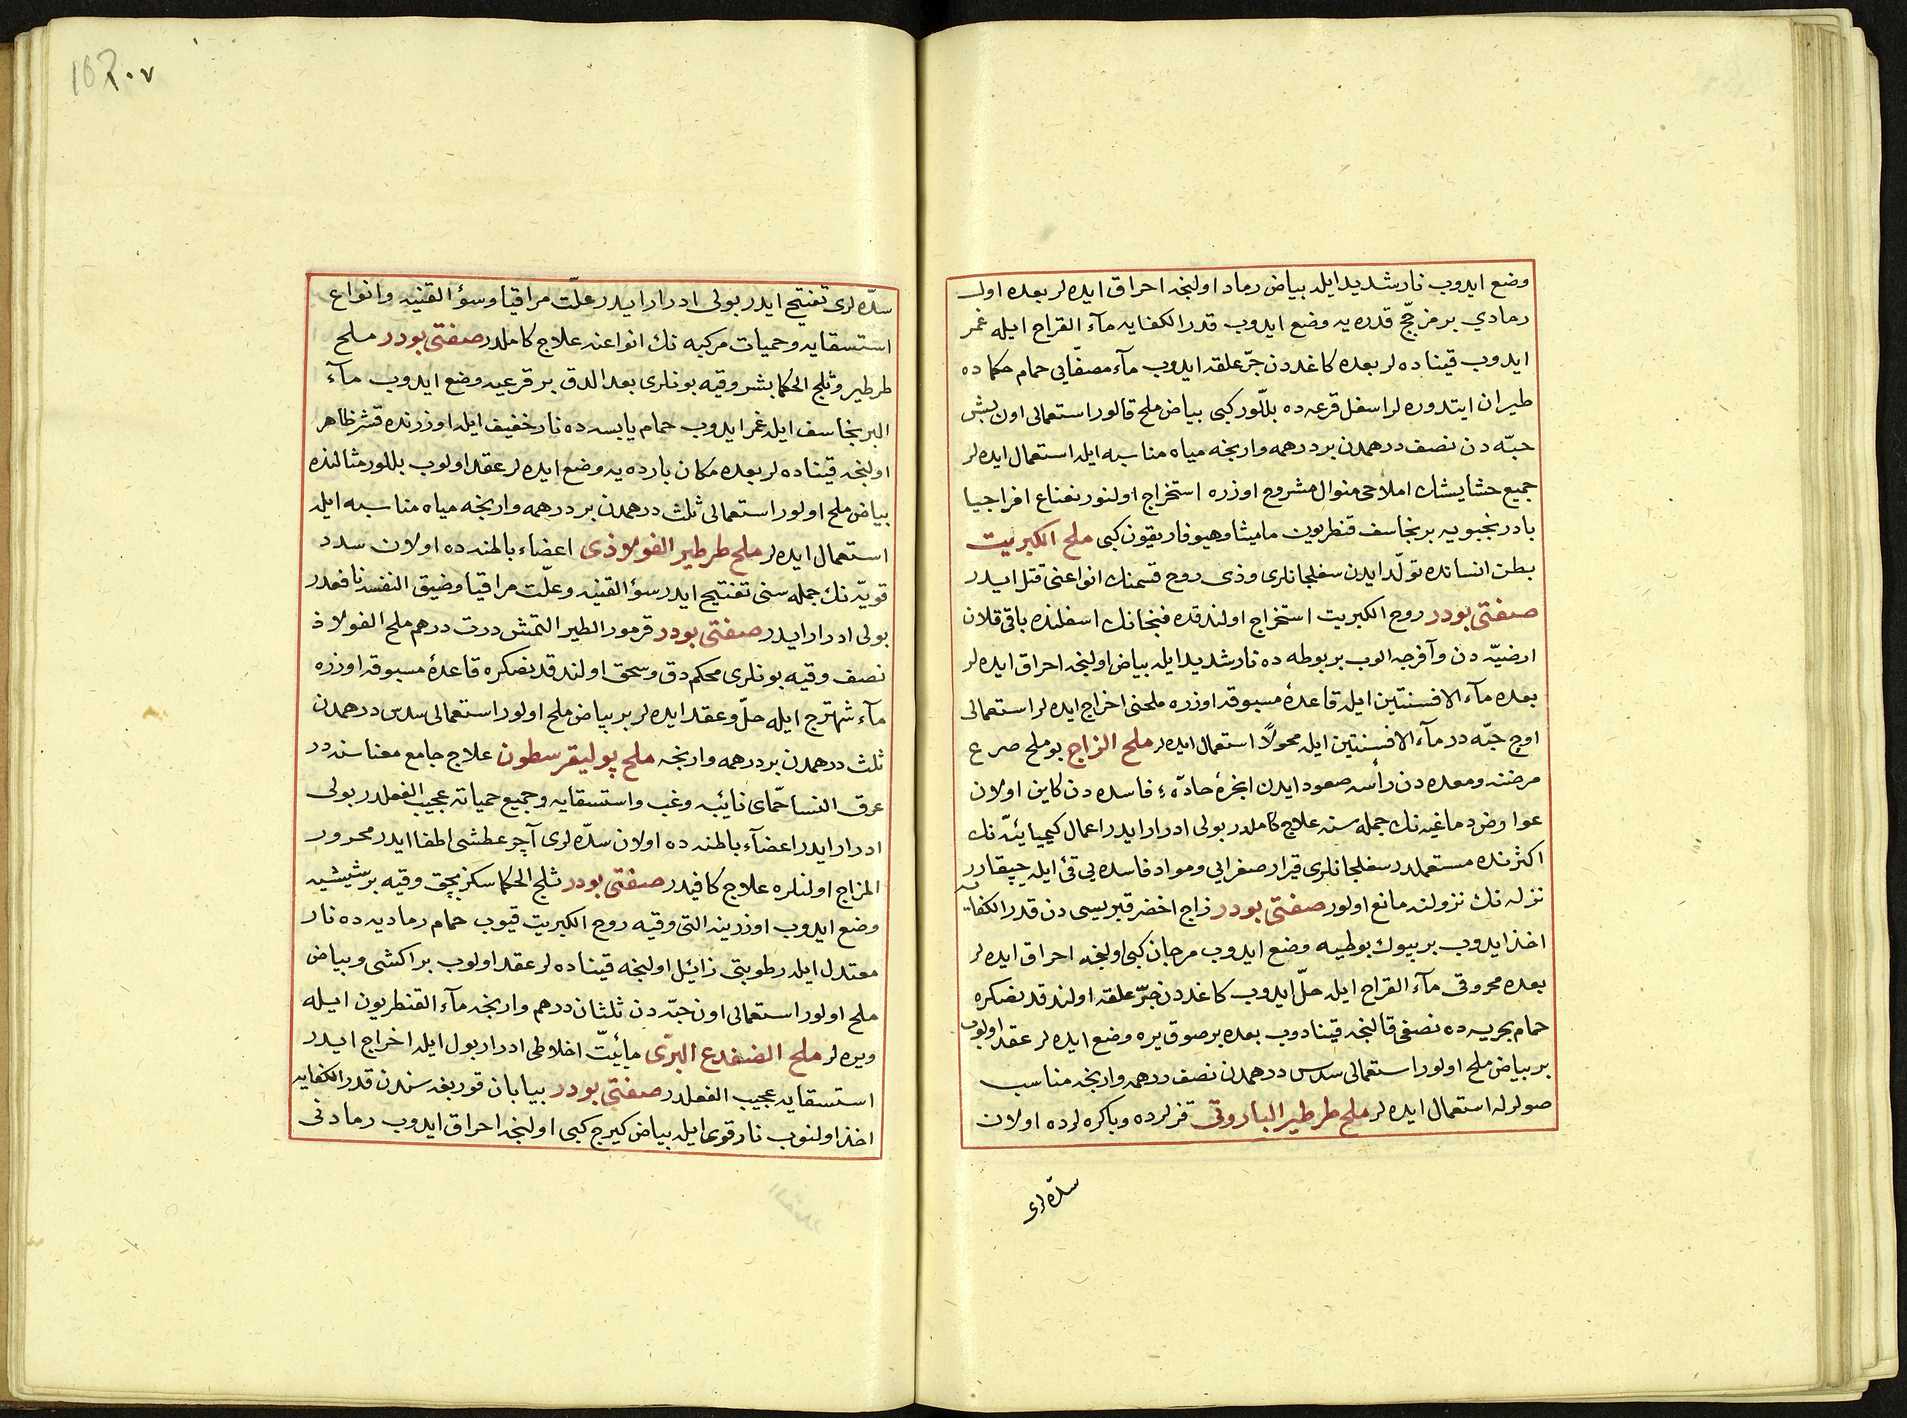 وضع ایدوب نار شدید ایله بیاض رماد اولنجه احراق ایده لر بعده اول
رمادي بر مزجّج قدره یه وضع ایدوب قدر الکفایه مآء القراح ایله غمر
ایدوب قیناده لر بعده کاغددن جرّ علقه ایدوب مآء مصفّایی حمام حکماده
طیران ایتدوره لر اسفل قرعه ده بلّور کبی بیاض ملح قالور استعمالی اون بش
حبّه دن نصف درهمدن بر درهمه وارنجه میاه مناسبه ایله استعمال ایده لر
جمیع حشایشك املاحی منوال مشروح اوزره استخراج اولنور نعناع افراجیا
بادرنجبویه برنجاسف قنطریون مامیثا وهیوفاریقون کبی ملح الکبریت
بطن انسانده تولّد ایدن سغلجانلری وذی روح قسمنك انواعنی قتل ایدر
صفتی بودر روح الکبریت استخراج اولندقده فنجانك اسفلنده باقی قلان
ارضیّه دن وآفرجه الوب بر بوطه ده نار شدید ایله بیاض اولنجه احراق ایده لر
بعده مآء الافسنتین ایله قاعدهٔ مسبوقه اوزره ملحنی اخراج ایده لر استعمالی
اوچ حبّه در مآء الافسنتین ایله محولاً استعمال ایده لر ملح الزاج بو ملح صرع
مرضنه ومعده دن رأسه صعود ایدن ابخرهٔ حادّهٔ فاسده دن کاین اولان
عوارض دماغیه نك جمله سنه علاج کاملدر بولی ادرار ایدر اعمال کیمیائیّه نك
اکثرنده مستعملدر سغلجانلری قیرار صفرایی ومواد فاسده یی قئ ایله چیقارر
نزله نك نزولنه مانع اولور صفتی بودر زاج اخضر قبریسی دن قدر الکفایه
اخذ ایدوب بر بیوك بوطیه وضع ایدوب مرجان کبی اولنجه احراق ایده لر
بعده محروقی مآء القراح ایله حلّ ایدوب کاغددن جرّ علقه اولندقدنصکره
حمام بحریه ده نصفی قالنجه قینادوب بعده بر صوق یره وضع ایده لر عقد اولوب
بر بیاض ملح اولور استعمالی سدس درهمدن نصف درهمه وارنجه مناسب
صولرله استعمال ایده لر ملح طرطیر الباروتی قزلرده وباکره لرده اولان
سدّه لری
سدّه لری تفتیح ایدر بولی ادرار ایدر علّت مراقیا وسؤ القنیه وانواع
استسقایه وحمیات مرکبه نك انواعنه علاج کاملدر صفتی بودر ملح
طرطیر وثلج الحکما بشر وقیه بونلری بعد الدق بر قرعیه وضع ایدوب مآء
البرنجاسف ایله غمر ایدوب حمام یابسه ده نار خفیف ایله اوزرنده قشر ظاهر
اولنجه قیناده لر بعده مکان بارده یه وضع ایده لر عقد اولوب بللور مثالنده
بیاض ملح اولور استعمالی ثلث درهمدن بر درهمه وارنجه میاه مناسبه ایله
استعمال ایده لر ملح طرطیر الفولاذی اعضاء باطنه ده اولان سدد
قویّه نك جمله سنی تفتیح ایدر سؤ القنیه وعلّت مراقیا وضیق النفسه نافعدر
بولی ادرار ایدر صفتی بودر قرمور الطیر التمش درت درهم ملح الفولاذ
نصف وقیه بونلری محکم دق وسحق اولندقدنصکره قاعدهٔ مسبوقه اوزره
مآء شهترج ایله حلّ وعقد ایده لر بر بیاض ملح اولور استعمالی سدس درهمدن
ثلث درهمدن بر درهمه وارنجه ملح پولیقرسطون علاج جامع معناسنه در
عرق النسا حمّای نائبه وغب واستسقایه وجمیع حمیاته عجیب الفعلدر بولی
ادرار ایدر اعضآء باطنه ده اولان سدّه لری آچر عطشی اطفا ایدر محرور
المزاج اولنلره علاج کافیدر صفتی بودر ثلج الحکما سکز بچق وقیه بر شیشیه
وضع ایدوب اوزرینه التی وقیه روح الکبریت قیوب حمام رمادیه ده نار
معتدل ایله رطوبتی زائیل اولنجه قیناده لر عقد اولوب بر اکشی وبیاض
ملح اولور استعمالی اون حبّه دن ثلثان درهم وارنجه مآء القنطریون ایله
ویره لر ملح الضفدع البرّی مائیّت اخلاطی ادرار بول ایله اخراج ایدر
استسقایه عجیب الفعلدر صفتی بودر بیابان قوربغه سندن قدر الکفایه
اخذ اولنوب نار قوی ایله بیاض کیرج کبی اولنجه احراق ایدوب رمادنی